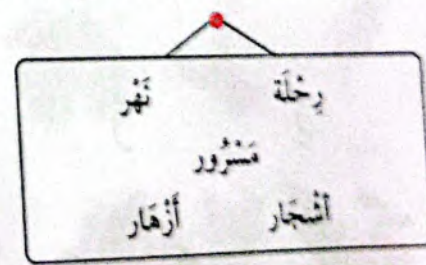 رِحْلَة نَهْر
مَسْرُور
أَشْجَار أَزْهَار